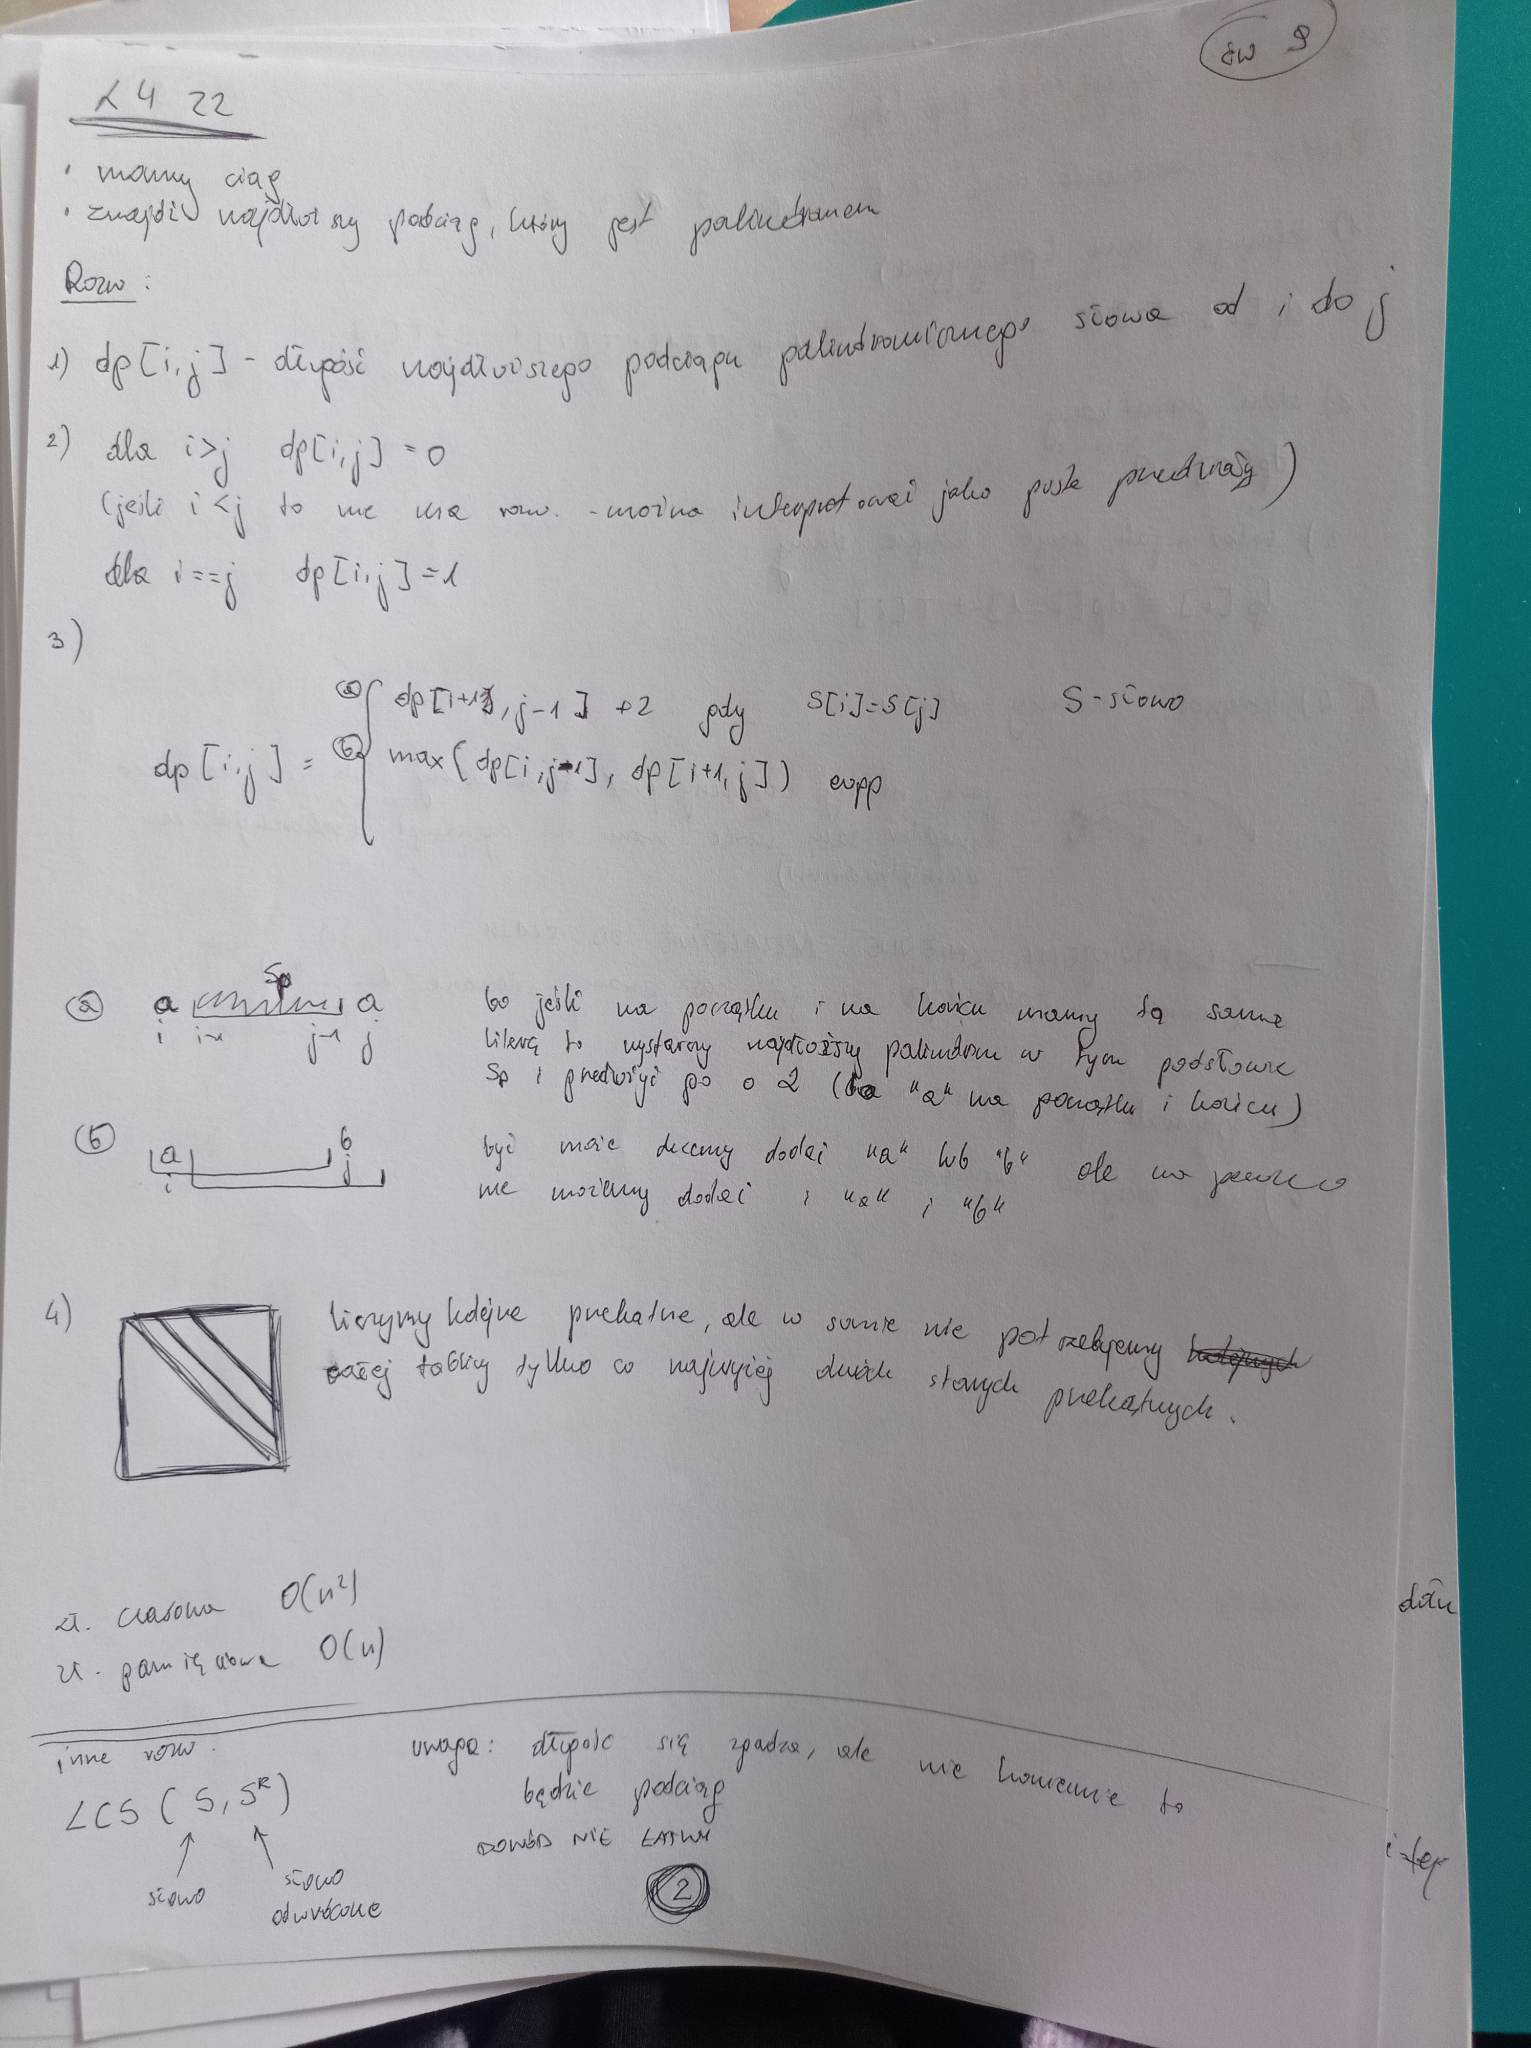 ćw 9
L4 Z2
• mamy ciąg
• znajdź najdłuższy podciąg, który jest palindromem
Rozw:
1) dp[i,j] - długość najdłuższego podciągu palindromicznego słowa od i do j
2) dla i>j dp[i,j] = 0
(jeśli i<j to nie ma rozw. - można interpretować jako puste przedziały)
dla i==j dp[i,j] = 1
3)
a dp[i+1, j-1] + 2 gdy S[i]=S[j] S-słowo
dp[i,j] =
b max(dp[i,j-1], dp[i+1,j]) wpp
Sp
a a a
i j-1 j
bo jeśli na początku i na końcu mamy tą samą
literę to wystarczy najdłuższy palindrom w tym podsłowie
Sp i przedłużyć go o 2 (bo "a" na początku i końcu)
b a b
i j
być może chcemy dodać "a" lub "b" ale na pewno
nie możemy dodać i "a" i "b"
4) liczymy kolejne przekątne, ale w sumie nie potrzebujemy
całej tablicy tylko co najwyżej dwóch starych przekątnych.
zł. czasowa O(n²)
zł. pamięciowa O(n)
inne rozw.
LCS(S, Sᴿ)
słowo
słowo
odwrócone
uwaga: długość się zgadza, ale nie koniecznie to
będzie podciąg
DOWÓD NIE ŁATWY
2